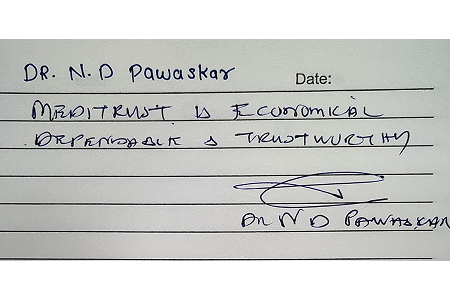 DR. N. D Pawaskar
Date:
MEDITRUST IS ECONOMICAL
DEPENDABLE & TRUSTWURTHY
DR N D PAWASKAR